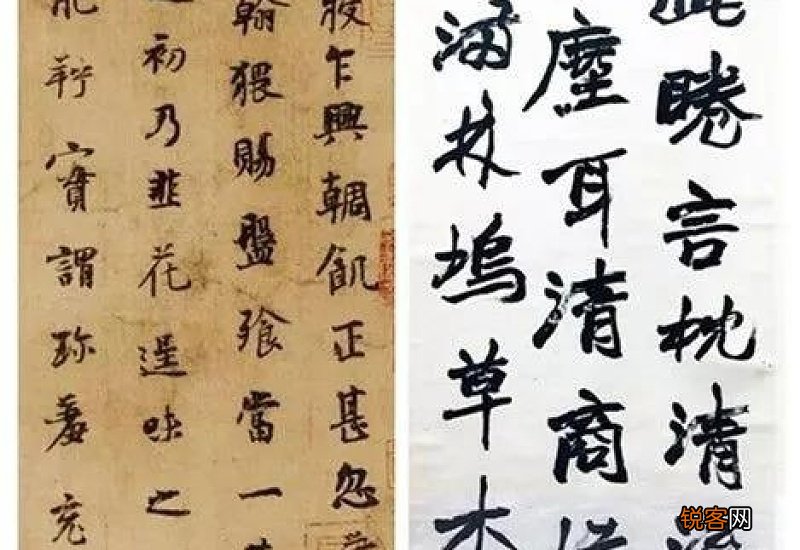 寢乍興輖飢正甚忽
翰猥賜盤飧當一
初乃韭花逞味之
肥羜實謂珎羞充
此睠言枕清
塵耳清商
滿林塢草木
锐客网